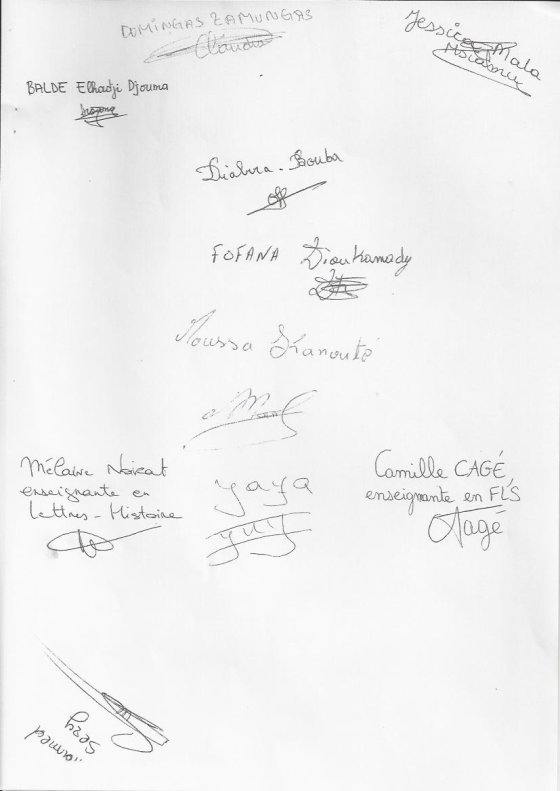 DOMINGAS ZAMUNGAS
Cláudia
Jessica Mala
BALDE Elhadji Djouma
Diabira. Bouba
FOFANA Dioukamady
Moussa Kanouté
Mélanie Noicat
enseignante en
Lettres-Histoire
yaya
Camille CAGÉ,
enseignante en FLS
Cagé